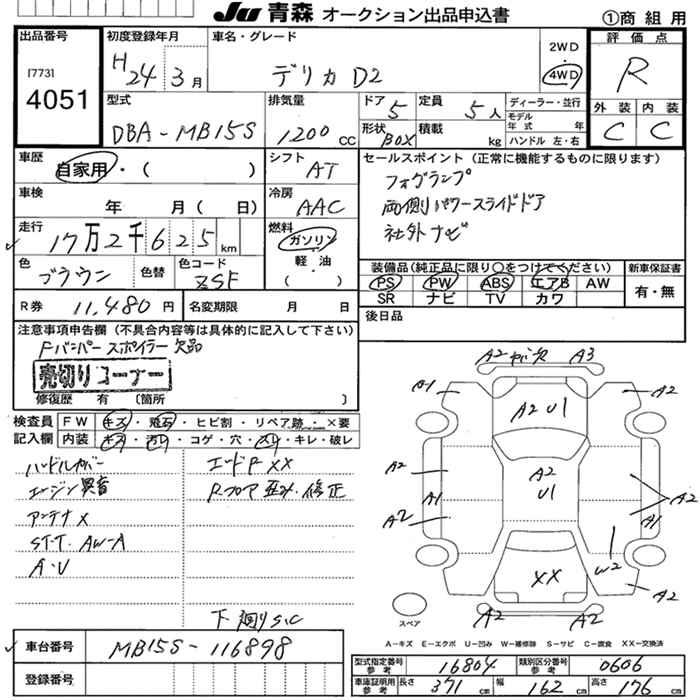 JU 青森 オークション出品申込書
①商 組 用
出品番号
17731
4051
初度登録年月
H24年3月
車名・グレード
デリカ D2
2WD
4WD
評価点
R
外装 内装
C C
型式
DBA-MB15S
排気量
1200 CC
ドア 5
定員 5人
形状 BOX
積載 kg
ディーラー・並行
モデル
年 式 年
ハンドル 左・右
車歴
自家用・( )
シフト AT
車検
年 月( 日)
冷房 AAC
走行
17万2千625 km
燃料
ガソリン
軽・油
( )
色
ブラウン
色替
色コード
ZSF
セールスポイント (正常に機能するものに限ります)
フォグランプ
両側パワースライドドア
社外ナビ
装備品(純正品に限り〇をつけてください)
PS PW ABS エアB AW
SR ナビ TV カワ
新車保証書
有・無
R券 11,480円
名変期限 月 日
後日品
注意事項申告欄 (不具合内容等は具体的に記入して下さい)
Fバンパースポイラー欠品
売切りコーナー
修復歴 有 (箇所 )
検査員記入欄
FW キズ・飛石・ヒビ割・リペア跡・×要
内装 キズ・汚レ・コゲ・穴・スレ・キレ・破レ
ハンドルカバー
エンジン異音
アンテナ×
ST.T. AW-A
A・U
エードF XX
Rフロア歪み・修正
下廻りS.C
車台番号
MB15S-116898
登録番号
A2 A3
A1 A2
A2 U1
A2
A2
U1
A1
A2
A2
A1
W2
XX
A2
A2 A2
スペア
A-キズ E-エクボ U-凹み W-補修跡 S-サビ C-腐食 XX-交換済
型式指定番号
参考
16804
類別区分番号
参考
0606
車庫証明用
参考
長さ 371 cm
幅 162 cm
高さ 176 cm